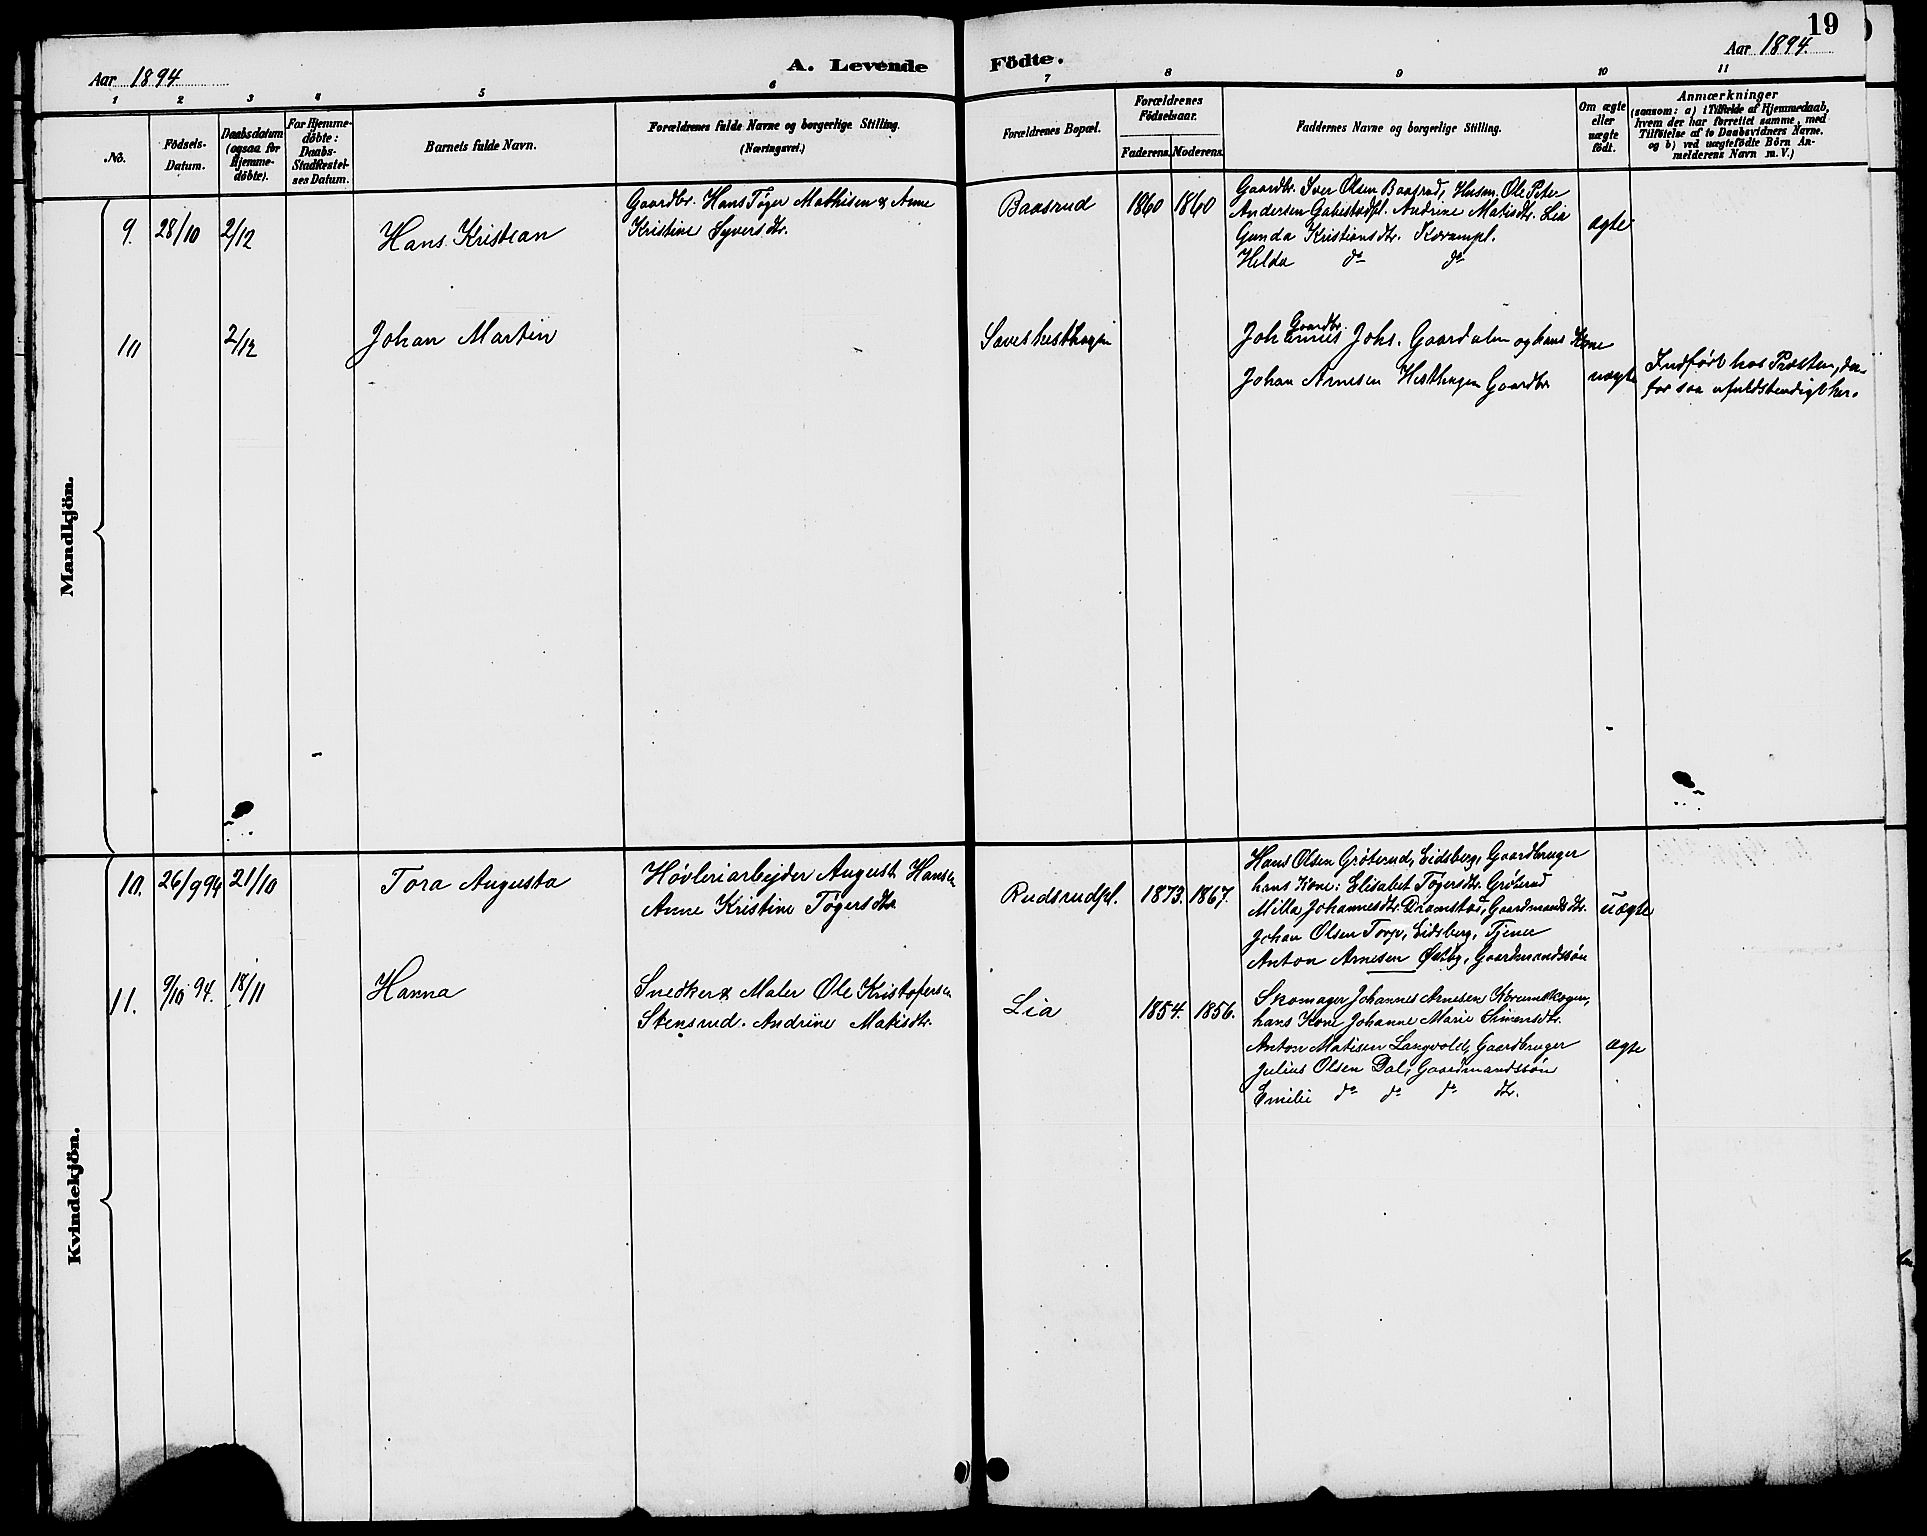 19
Aar 1894
A. Levende Födte.
Aar 1894
1 2 3 4 5 6 7 8 9 10 11
No.
Födsels-
Datum.
Daabsdatum
(ogsaa for
Hjemme-
döbte).
For Hjemme-
döbte:
Daabs-
Stadfæstel-
ses Datum.
Barnets fulde Navn.
Forældrenes fulde Navne og borgerlige Stilling.
(Næringsvei.)
Forældrenes Bopæl.
Forældrenes
Födselsaar.
Faderens. Moderens.
Faddernes Navne og borgerlige Stilling.
Om ægte
eller
uægte
födt.
Anmærkninger
(saasom: a) i Tilfælde af Hjemmedaab,
hvem der har forrettet samme, med
Tilföielse af to Daabsvidners Navne.
og b) ved uægtefödte Börn An-
melderens Navn m. V.)
Mandkjön.
9. 28/10 2/12 Hans Kristian
Gaardbr. Hans Tøger Mathisen & Anne
Kristine Syversdtr.
Baasrud 1860 1860
Gaardbr. Iver Olsen Baasrud, Husm. Ole Peter
Andersen Gabestadpl. Andrine Matisdtr. Lia
Gunda Kristiansdtr. Korampl.
Helda do do
ægte
10 2/12 Johan Martin
Saveshesthagen
Gaardbr.
Johannes Johs. Gaardalen og hans Kone
Johan Arnesen Hesthagen Gaardbr
uægte
Indført hos Præsten, der-
for saa ufuldstendigt her.
Kvindekjön.
10. 26/9 94 21/10 Tora Augusta
Høvleriarbejder August Hansen
Anne Kristine Tøgersdtr
Rudsrudpl. 1873. 1867.
Hans Olsen Grøterud, Eidsberg, Gaardbruger
hans Kone: Elisabet Tøgersdtr. Grøterud
Milla Johannesdtr. Dramstad, Gaardmandsdtr.
Johan Olsen Torp, Eidsberg, Tjener
Anton Arnesen Østby, Gaardmandssøn
uægte
11. 9/10 94. 18/11 Hanna
Snedker & Maler Ole Kristofersen
Stensrud. Andrine Matisdtr.
Lia 1854. 1856.
Skomager Johannes Arnesen Korumskogen,
hans Kone Johanne Marie Simensdtr.
Anton Matisen Langvold, Gaardbruger
Julius Olsen Dal, Gaardmandssøn
Emilie do do do dtr.
ægte